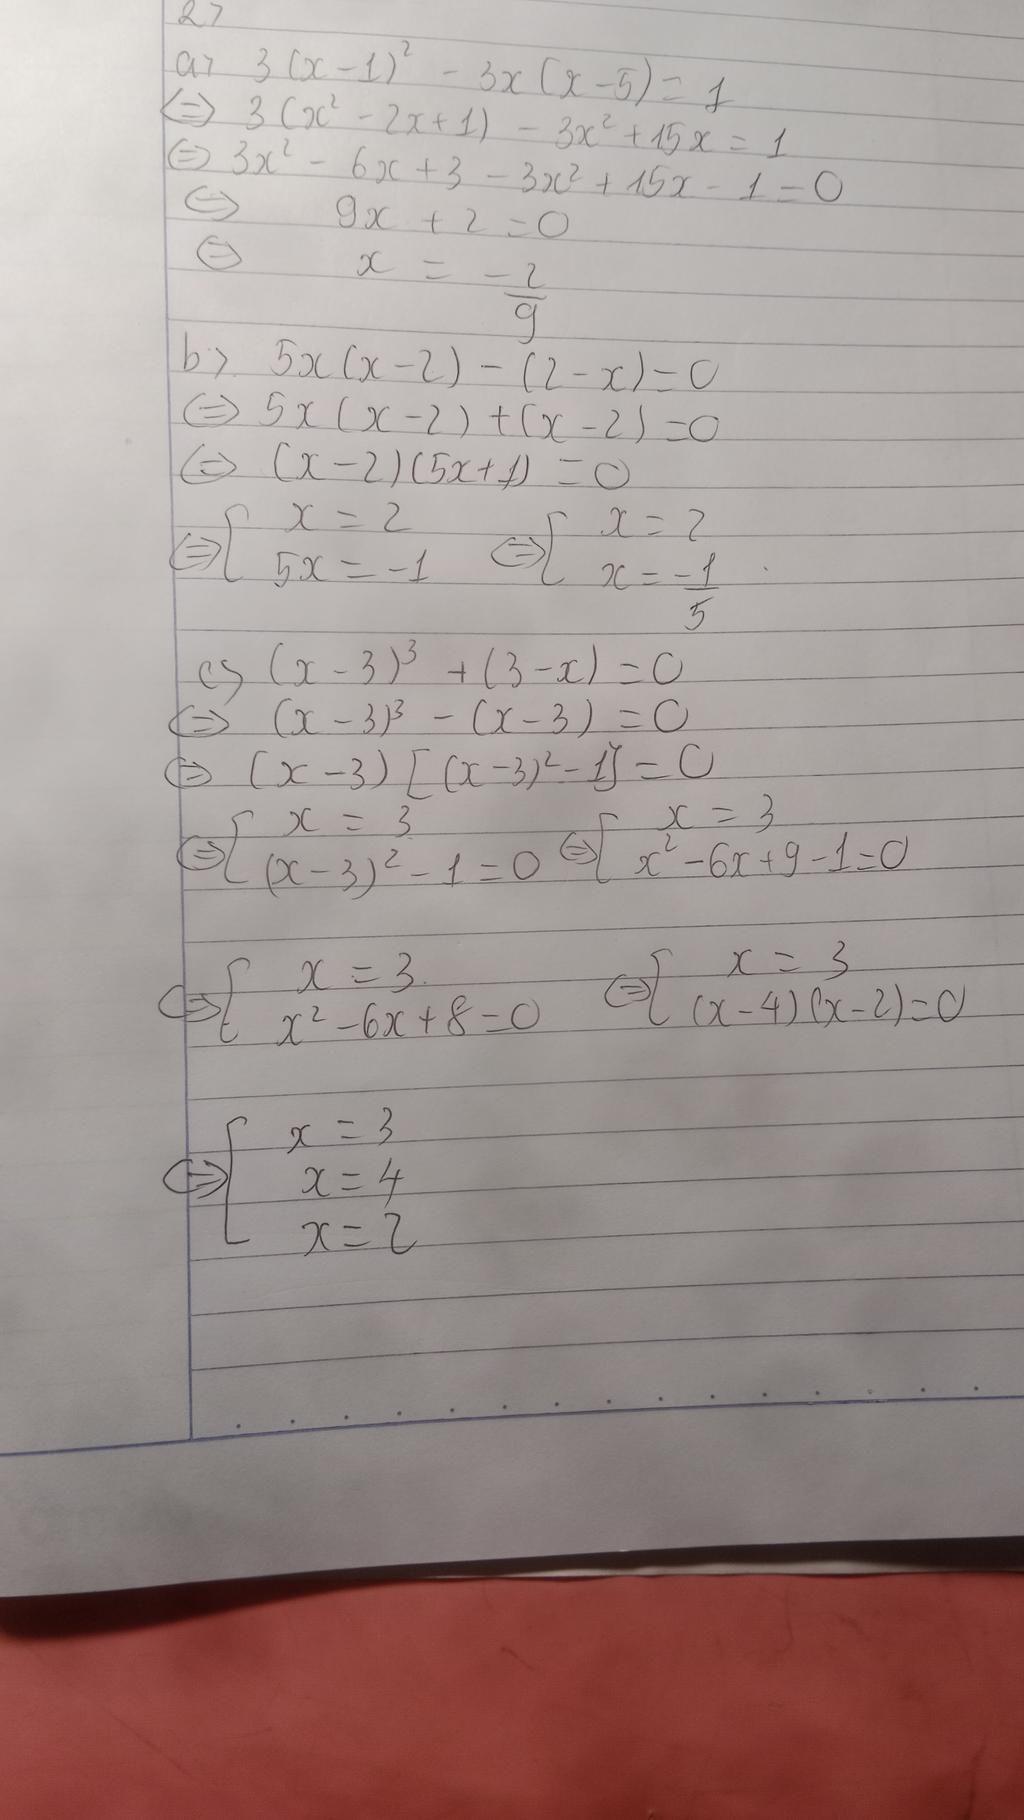 2>
a> 3(x-1)² - 3x(x-5) = 1
⇔ 3(x² - 2x+1) - 3x² + 15x = 1
⇔ 3x² - 6x + 3 - 3x² + 15x - 1 = 0
⇔ 9x + 2 = 0
⇔ x = -2/9
b> 5x(x-2) - (2-x) = 0
⇔ 5x(x-2) + (x-2) = 0
⇔ (x-2)(5x+1) = 0
⇔ [ x = 2 ⇔ [ x = 2
5x = -1 x = -1/5
c> (x-3)³ + (3-x) = 0
⇔ (x-3)³ - (x-3) = 0
⇔ (x-3) [(x-3)² - 1] = 0
⇔ [ x = 3 ⇔ [ x = 3
(x-3)² - 1 = 0 x² - 6x + 9 - 1 = 0
⇔ [ x = 3. ⇔ [ x = 3
x² - 6x + 8 = 0 (x-4)(x-2) = 0
⇔ [ x = 3
x = 4
x = 2